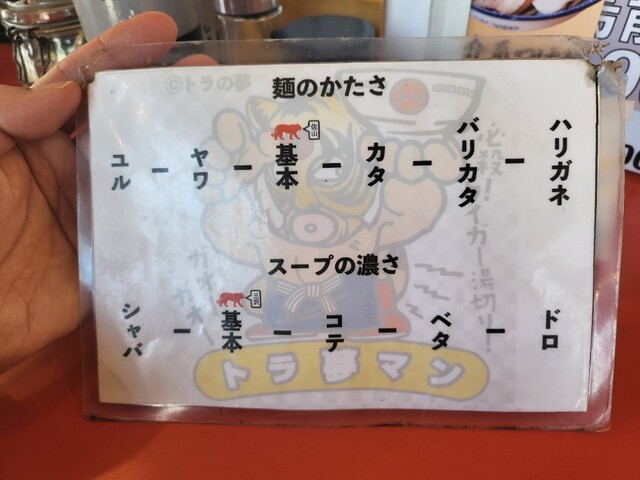 ©トラの夢
麺のかたさ
ユル ー ヤワ ー 基本 ー カタ ー バリカタ ー ハリガネ
必殺！タイガー湯切り！
スープの濃さ
シャバ ー 基本 ー コテ ー ベタ ー ドロ
トラ夢マン